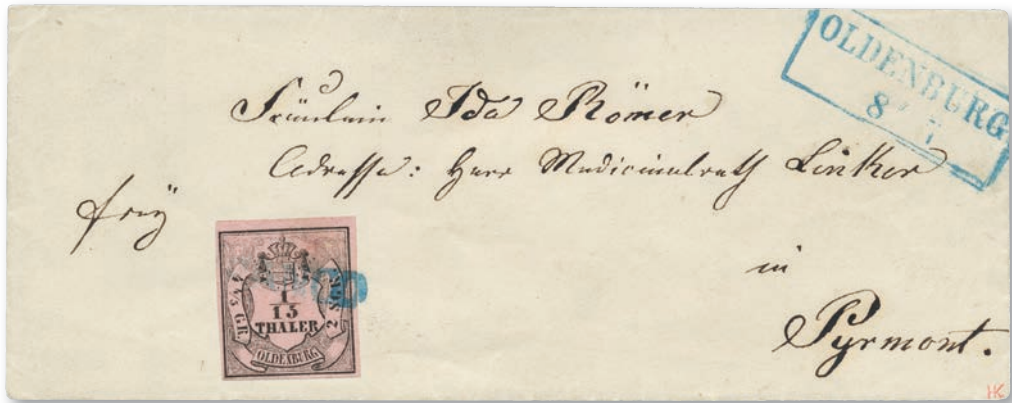 OLDENBURG
8 7
Fräulein Ida Römer
Adresse: Herr Medicinalrath Linker
frey
in
Pyrmont.
4⅘ GR.
1/15
THALER
2 SGR.
OLDENBURG
HK